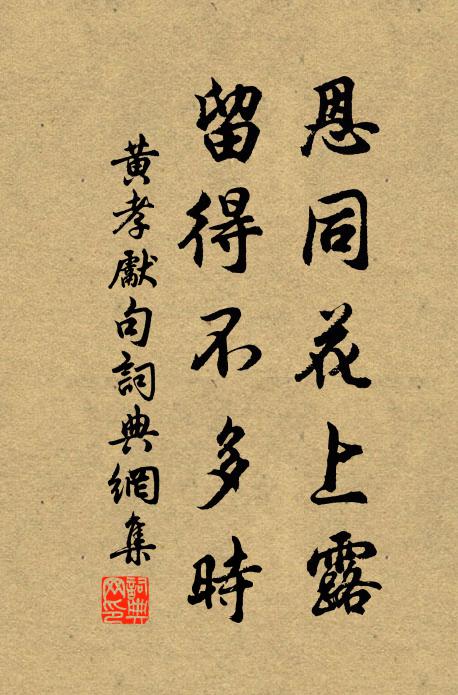 恩同花上露
留得不多時
黃孝獻句詞典網集
詞典网印